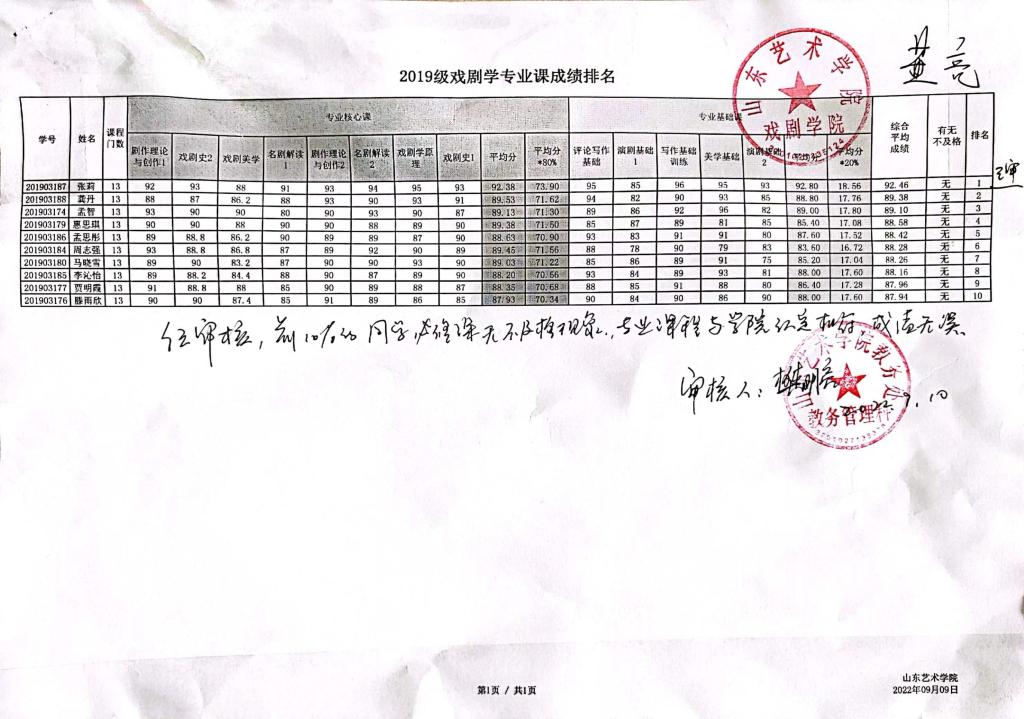 2019级戏剧学专业课成绩排名
学号 姓名 课程门数 专业核心课 专业基础课 综合平均成绩 有无不及格 排名
剧作理论与创作1 戏剧史2 戏剧美学 名剧解读1 剧作理论与创作2 名剧解读2 戏剧学原理 戏剧史1 平均分 平均分*80% 评论写作基础 演剧基础1 写作基础训练 美学基础 演剧基础2 平均分 平均分*20%
201903187 张莉 13 92 93 88 91 93 94 95 93 92.38 73.90 95 85 96 95 93 92.80 18.56 92.46 无 1
201903188 龚丹 13 88 87 86.2 88 90 90 93 91 89.53 71.62 94 82 90 93 85 88.80 17.76 89.38 无 2
201903174 孟智 13 93 90 90 80 90 93 90 87 89.13 71.30 89 86 92 96 82 89.00 17.80 89.10 无 3
201903179 惠思琪 13 90 90 88 90 90 88 89 90 89.38 71.50 85 87 89 81 85 85.40 17.08 88.58 无 4
201903186 孟思彤 13 89 88.8 86.2 90 89 89 87 90 88.63 70.90 93 83 91 91 80 87.60 17.52 88.42 无 5
201903184 周志强 13 93 88.8 86.8 87 89 92 90 89 89.45 71.56 88 78 90 79 83 83.60 16.72 88.28 无 6
201903180 马晓雪 13 89 90 83.2 87 90 90 93 90 89.03 71.22 85 86 89 91 75 85.20 17.04 88.26 无 7
201903185 李沁怡 13 89 88.2 84.4 88 90 87 89 90 88.20 70.56 93 84 89 93 81 88.00 17.60 88.16 无 8
201903177 贾明霞 13 91 88.8 88 85 90 89 88 87 88.35 70.68 88 85 91 88 80 86.40 17.28 87.96 无 9
201903176 滕雨欣 13 90 90 87.4 85 91 89 86 85 87.93 70.34 90 84 90 86 90 88.00 17.60 87.94 无 10
山东艺术学院
戏剧学院
经审核，前10%的同学，必修课无不及格现象，专业课程与学院认定相符，成绩无误。
审核人：
2022.9.10
山东艺术学院教务处
教务管理科
第1页 / 共1页
山东艺术学院
2022年09月09日